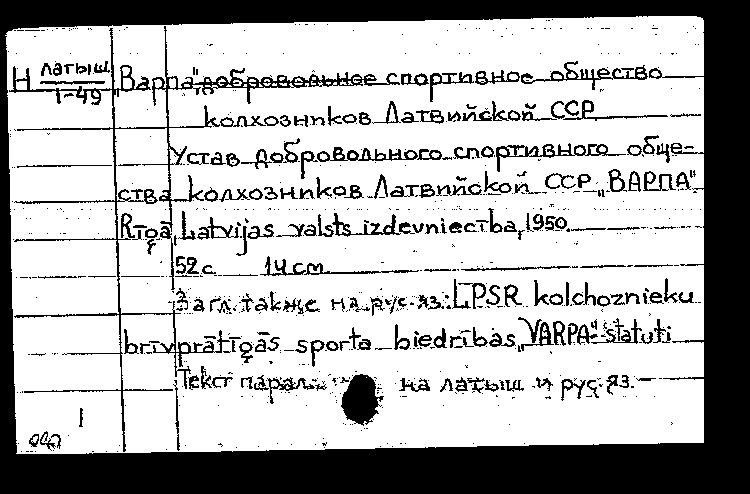 Н латыш
1-49
"Варпа", добровольное спортивное общество
колхозников Латвийской ССР
Устав добровольного спортивного обще-
ства колхозников Латвийской ССР „ВАРПА"
Rīgā, Latvijas valsts izdevniecība, 1950.
52 с 14 см
Загл. также на рус. яз.: LPSR kolchoznieku
brīvprātīgās sporta biedrības „VARPA" statuti
Текст парал. на латыш и рус. яз. –
1